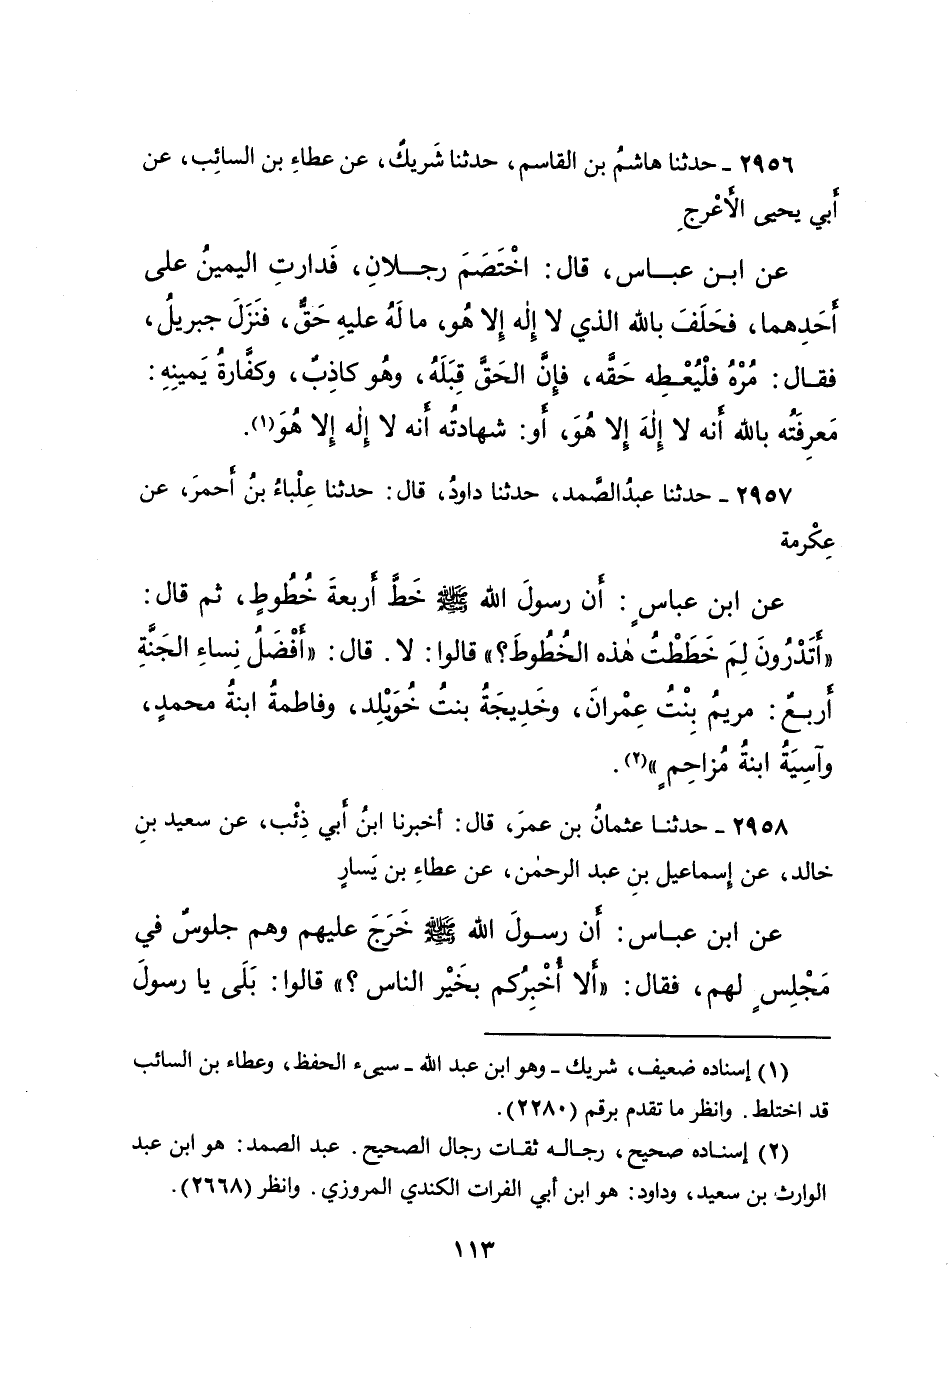 ٢٩٥٦ ـ حدثنا هاشمُ بن القاسم، حدثنا شَريكٌ، عن عطاءِ بن السائِب، عن
أَبي يحيى الأَعْرجِ
عن ابن عباس، قال: اخْتَصَمَ رجلانِ، فَدارتِ اليمينُ على
أَحَدِهما، فحَلَفَ بالله الذي لا إِلٰه إلا هُو، ما لَهُ عليهِ حَقٌّ، فنَزَلَ جبريلُ،
فقال: مُرْهُ فلْيُعْطِه حَقَّه، فإِنَّ الحَقَّ قِبَلَهُ، وهُو كاذِبٌ، وكفَّارةُ يَمينِهِ:
مَعرِفَتُه بالله أَنه لا إِلٰهَ إِلا هُوَ، أَو: شهادتُه أَنه لا إِلٰه إِلا هُوَ(١).
٢٩٥٧ ـ حدثنا عبدُالصَّمد، حدثنا داودُ، قال: حدثنا عِلْباءُ بنُ أَحمرَ، عن
عِكْرمة
عن ابن عباسٍ: أَن رسولَ الله ﷺ خَطَّ أَربعةَ خُطُوطٍ، ثم قال:
«أَتَدْرُونَ لِمَ خَطَطْتُ هٰذه الخُطُوطَ؟» قالوا: لا. قال: «أَفْضَلُ نِساءِ الجَنَّةِ
أَربعٌ: مريمُ بِنْتُ عِمْرانَ، وخَدِيجَةُ بنتُ خُوَيْلِد، وفاطمةُ ابنةُ محمدٍ،
وآسِيَةُ ابنةُ مُزاحِمٍ»(٢).
٢٩٥٨ ـ حدثنا عثمانُ بن عمرَ، قال: أخبرنا ابنُ أَبي ذِئْب، عن سعيد بنِ
خالد، عن إِسماعيل بنِ عبد الرحمٰن، عن عطاءِ بن يَسارٍ
عن ابن عباس: أَن رسولَ الله ﷺ خَرَجَ عليهم وهم جلوسٌ في
مَجْلِسٍ لهم، فقال: «أَلا أُخْبِرُكم بخَيْر الناس؟» قالوا: بَلَى يا رسولَ
(١) إسناده ضعيف، شريك ـ وهو ابن عبد الله ـ سيىء الحفظ، وعطاء بن السائب
قد اختلط. وانظر ما تقدم برقم (٢٢٨٠).
(٢) إسناده صحيح، رجاله ثقات رجال الصحيح. عبد الصمد: هو ابن عبد
الوارث بن سعيد، وداود: هو ابن أبي الفرات الكندي المروزي. وانظر (٢٦٦٨).
١١٣